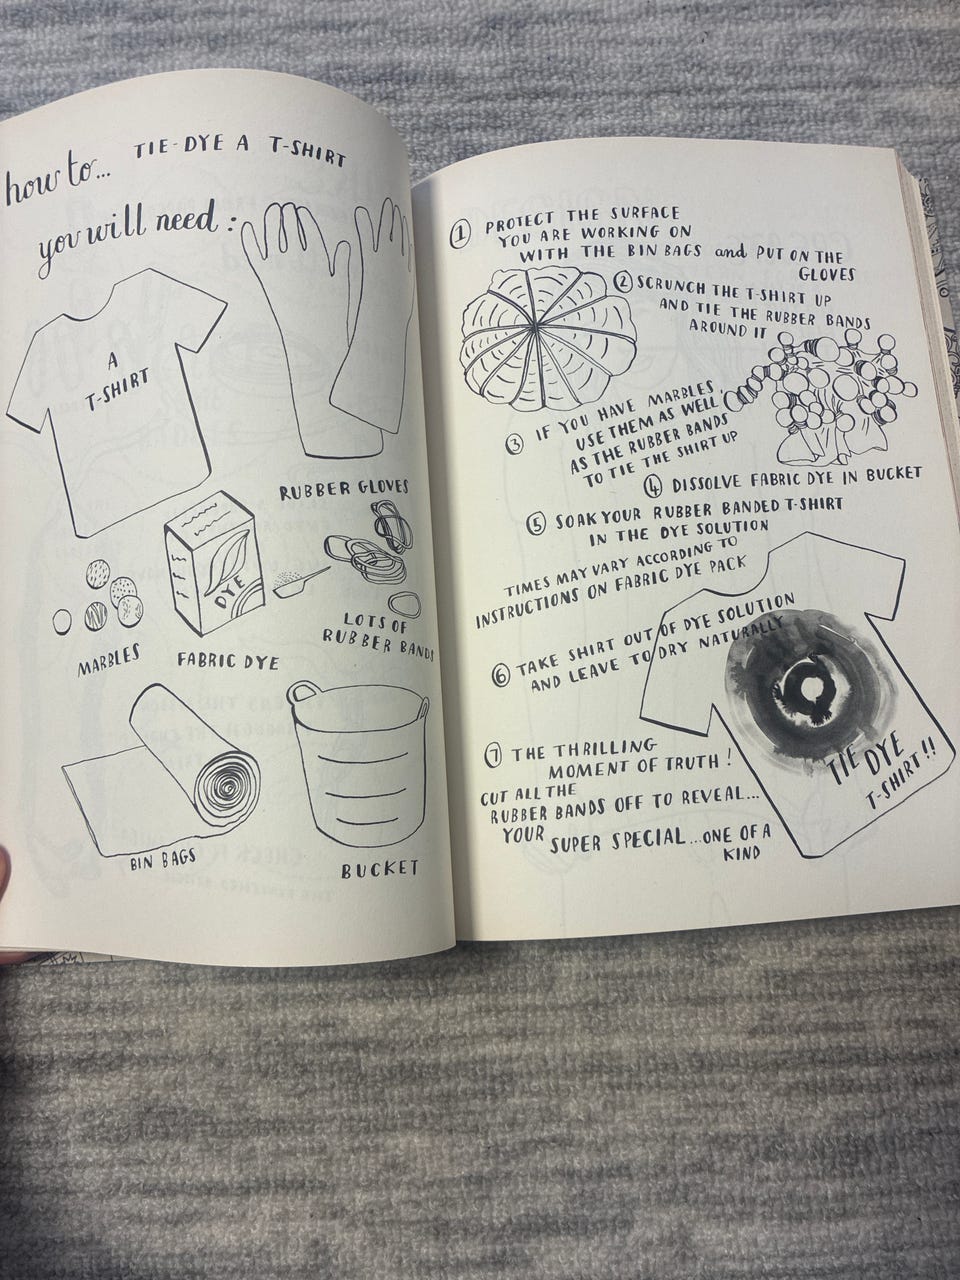 how to... TIE-DYE A T-SHIRT
you will need:
A
T-SHIRT
RUBBER GLOVES
DYE
MARBLES
FABRIC DYE
LOTS OF
RUBBER BANDS
BIN BAGS
BUCKET
1 PROTECT THE SURFACE
YOU ARE WORKING ON
WITH THE BIN BAGS and PUT ON THE
GLOVES
2 SCRUNCH THE T-SHIRT UP
AND TIE THE RUBBER BANDS
AROUND IT
3 IF YOU HAVE MARBLES,
USE THEM AS WELL
AS THE RUBBER BANDS
TO TIE THE SHIRT UP
4 DISSOLVE FABRIC DYE IN BUCKET
5 SOAK YOUR RUBBER BANDED T-SHIRT
IN THE DYE SOLUTION
TIMES MAY VARY ACCORDING TO
INSTRUCTIONS ON FABRIC DYE PACK
6 TAKE SHIRT OUT OF DYE SOLUTION
AND LEAVE TO DRY NATURALLY
7 THE THRILLING
MOMENT OF TRUTH!
CUT ALL THE
RUBBER BANDS OFF TO REVEAL...
YOUR
SUPER SPECIAL...ONE OF A
KIND
TIE DYE
T-SHIRT!!